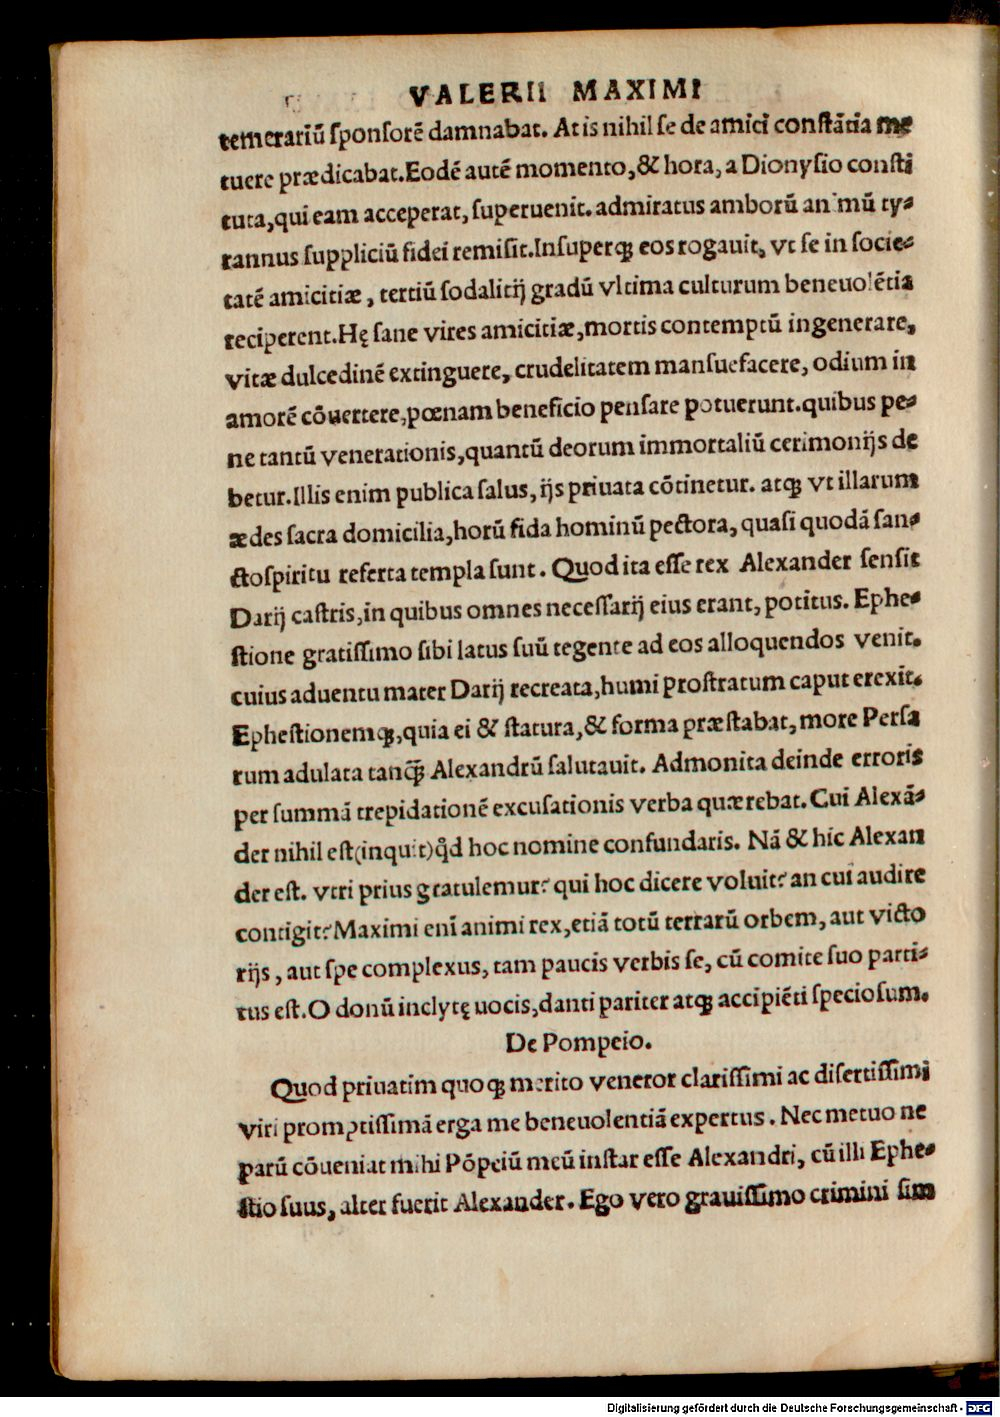 VALERII MAXIMI
temerariū sponsorē damnabat. At is nihil se de amici constātia me
tuere prædicabat.Eodē autē momento,& hora, a Dionysio consti
tuta,qui eam acceperat, superuenit. admiratus amborū animū ty-
rannus suppliciū fidei remisit.Insuperq; eos rogauit, vt se in socie-
tatē amicitiæ, tertiū sodalitij gradū vltima culturum beneuolētia
reciperent.Hę sane vires amicitiæ,mortis contemptū ingenerare,
vitæ dulcedinē extinguere, crudelitatem mansuefacere, odium in
amorē cōuertere,pœnam beneficio pensare potuerunt.quibus pe-
ne tantū venerationis,quantū deorum immortaliū cerimonijs de
betur.Illis enim publica salus, ijs priuata cōtinetur. atq; vt illarum
ædes sacra domicilia,horū fida hominū pectora, quasi quodā san-
ctospiritu referta templa sunt. Quod ita esse rex Alexander sensit
Darij castris,in quibus omnes necessarij eius erant, potitus. Ephe-
stione gratissimo sibi latus suū tegente ad eos alloquendos venit.
cuius aduentu mater Darij recreata,humi prostratum caput erexit.
Ephestionemq;,quia ei & statura,& forma præstabat, more Persa
rum adulata tanq̄; Alexandrū salutauit. Admonita deinde erroris
per summā trepidationē excusationis verba quærebat. Cui Alexā-
der nihil est(inquit)qd̊ hoc nomine confundaris. Nā & hic Alexan
der est. vtri prius gratulemur? qui hoc dicere voluit? an cui audire
contigit? Maximi enī animi rex,etiā totū terrarū orbem, aut victo
rijs, aut spe complexus, tam paucis verbis se, cū comite suo parti-
tus est.O donū inclytę uocis,danti pariter atq; accipiēti speciosum.
De Pompeio.
Quod priuatim quoq; merito veneror clarissimi ac disertissimi
viri promptissimā erga me beneuolentiā expertus. Nec metuo ne
parū cōueniat mihi Pōpeiū meū instar esse Alexandri, cū illi Ephe-
stio suus, alter fuerit Alexander. Ego vero grauissimo crimini sim
Digitalisierung gefördert durch die Deutsche Forschungsgemeinschaft - DFG